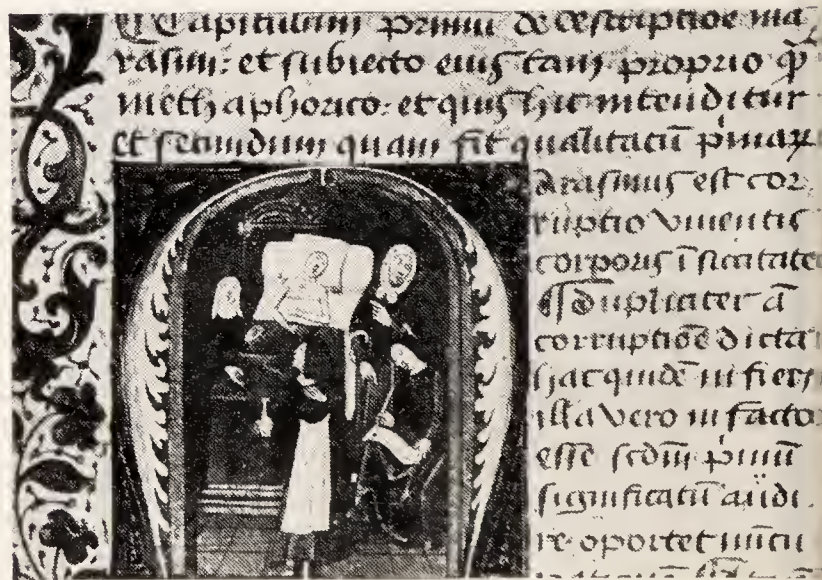 Capitulum primū de descriptiōe ma
rasmi: et subiecto eius tam proprio q̄
methaphorico: et quis hic intenditur
et secundum quam fit qualitatū p̄mar
arasmus est cor
ruptio viuentis
corporis ī siccitate
dupliciter a
corruptiōe dicta
hac quidē in fieri
illa vero in facto
esse scdm̄ pimū
significatū audi
re oportet